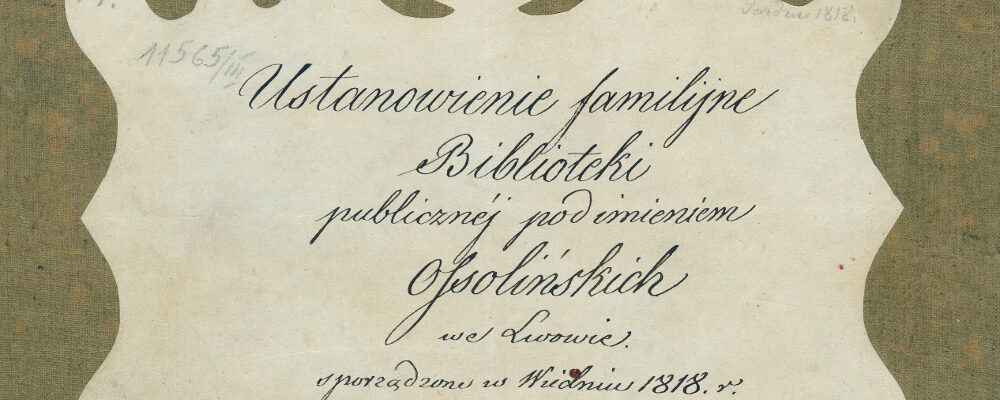 Wiedniu 1818.
11565/III
Ustanowienie familijne
Biblioteki
publicznéj pod imieniem
Ossolińskich
we Lwowie.
sporządzone w Wiedniu 1818. r.